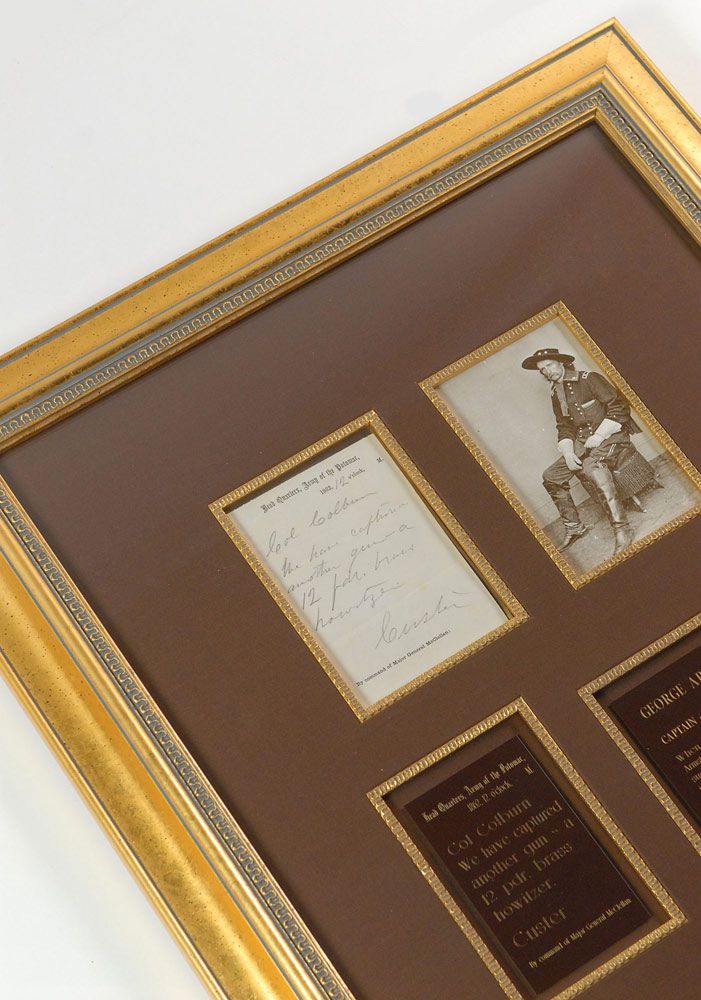 Head Quarters, Army of the Potomac,
1862, 12 o'clock, M.
Col Colburn
We have captured
another gun – a
12 pdr. brass
howitzer
Custer
By command of Major General McClellan:
Head Quarters, Army of the Potomac,
1862, 12 o'clock, M
Col Colburn
We have captured
another gun ~ a
12 pdr. brass
howitzer.
Custer
By command of Major General McClellan
GEORGE
CAPTAIN
When